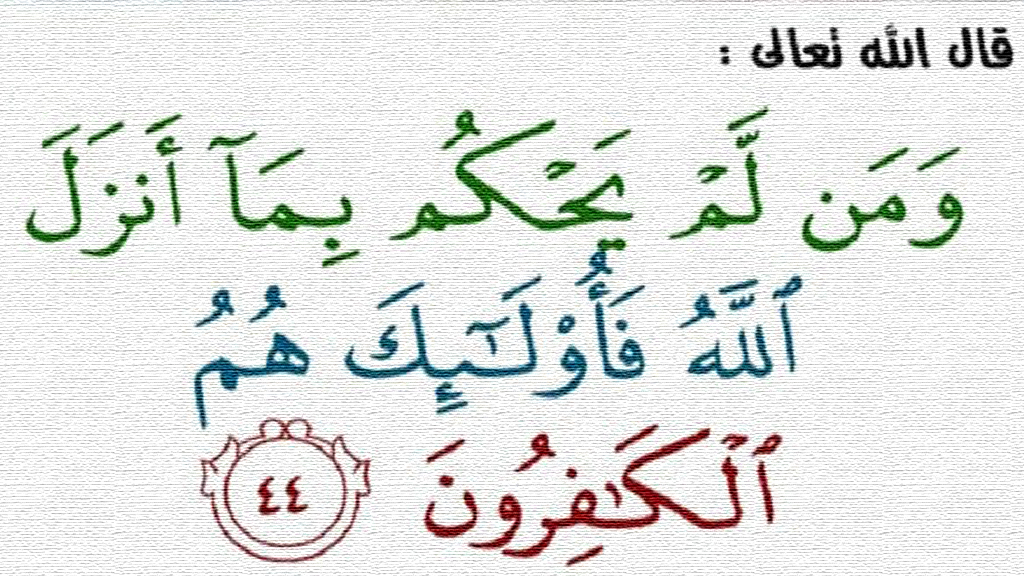 قال الله تعالى :
وَمَن لَّمْ يَحْكُم بِمَآ أَنزَلَ
ٱللَّهُ فَأُوْلَٰٓئِكَ هُمُ
ٱلْكَٰفِرُونَ ٤٤